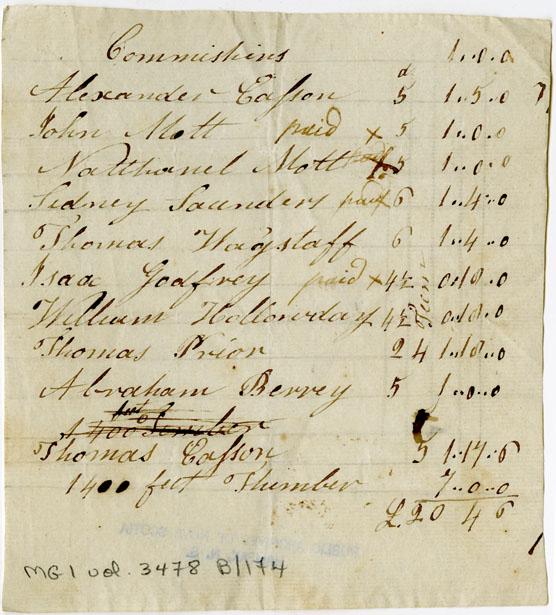 Commishins 1..0..0
d
Alexander Easson 5 1..5..0
John Mott paid x 5 1..0..0
Natthanel Mott paid 5 1..0..0
Sidney Saunders paid x 6 1..4..0
Thomas Wagstaff 6 1..4..0
Isaa Godfrey paid x 4½ 0..18..0
William Holloway 4½ 0..18..0
Thomas Prior 24 1..18..0
Abraham Berrey 5 1..0..0
1400
Thomas Easson 5 1..17..6
1400 feet Thimber 7..0..0
£ 20 4 6
PUBLIC ARCHIVES OF NOVA SCOTIA
HALIFAX, N. S.
MG1 vol. 3478 B/174